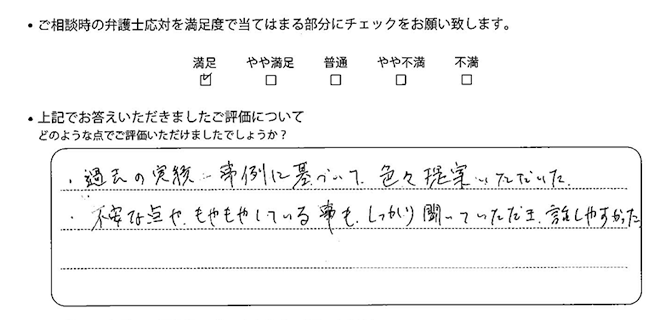 • ご相談時の弁護士応対を満足度で当てはまる部分にチェックをお願い致します。
満足 やや満足 普通 やや不満 不満
☑ □ □ □ □
• 上記でお答えいただきましたご評価について
どのような点でご評価いただけましたでしょうか？
・過去の実績、事例に基づいて、色々提案いただいた。
・不安な点や、もやもやしている事も、しっかり聞いていただき、話しやすかった